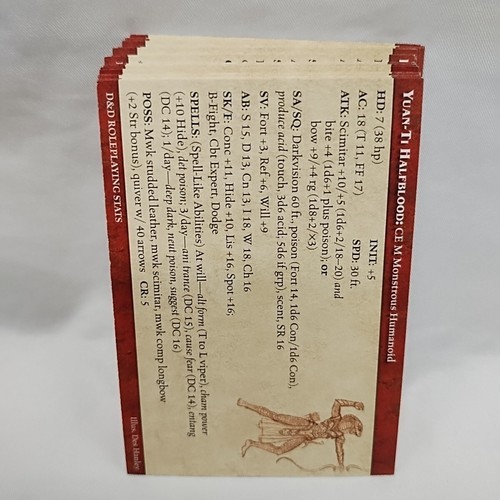 YUAN-TI HALFBLOOD: CE M Monstrous Humanoid
HD: 7 (38 hp) INIT: +5
AC: 18 (T 11, FF 17) SPD: 30 ft.
ATK: Scimitar +10/+5 (1d6+2/18–20) and
bite +4 (1d6+1 plus poison); or
bow +9/+4 rg (1d8+2/x3)
SA/SQ: Darkvision 60 ft, poison (Fort 14, 1d6 Con/1d6 Con),
produce acid (touch, 3d6 acid; 5d6 if grp), scent; SR 16
SV: Fort +3, Ref +6, Will +9
AB: S 15, D 13, Cn 13, I 18, W 18, Ch 16
SK/F: Conc +11, Hide +10, Lis +16, Spot +16;
B-Fight, Chr Expert, Dodge
SPELLS: (Spell-Like Abilities) At will—alt form (T to L viper), charm power
(+10 Hide), det poison; 3/day—ani trance (DC 15), cause fear (DC 14), entang
(DC 14); 1/day—deep dark, neut poison, suggest (DC 16)
POSS: Mwk studded leather, mwk scimitar, mwk comp longbow
(+2 Str bonus), quiver w/ 40 arrows CR: 5
D&D ROLEPLAYING STATS
Illus. Des Hanley